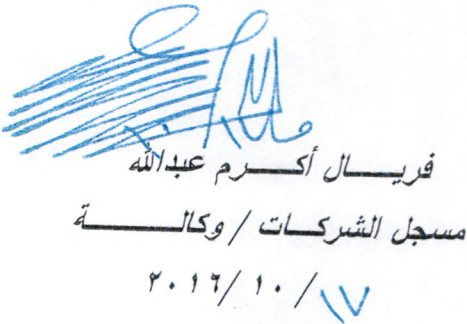 فريال أكرم عبدالله
مسجل الشركات / وكالة
١٧ / ١٠ / ٢٠١٦